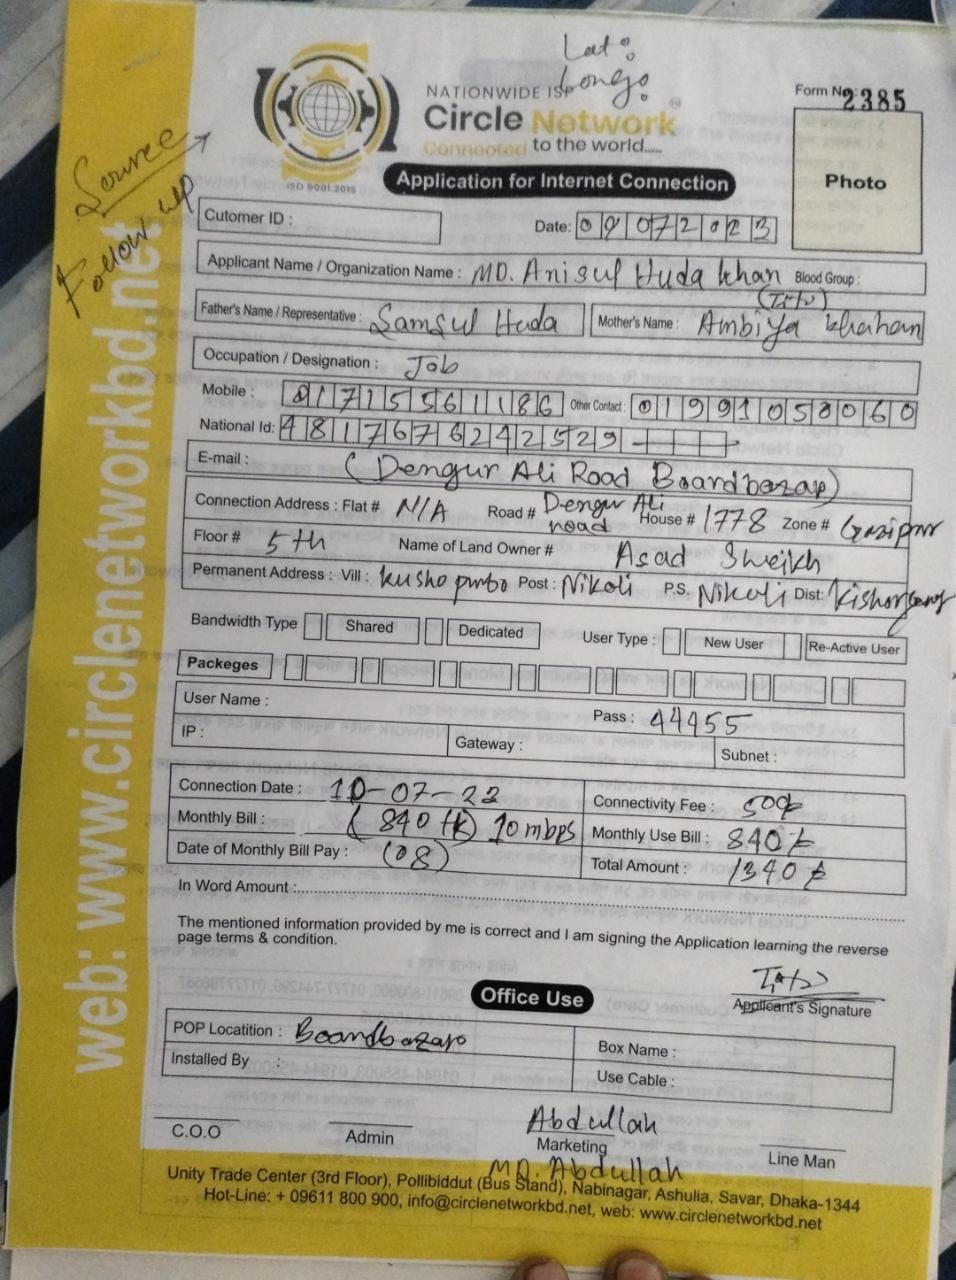 Lat:
Long:
NATIONWIDE ISP
Form No: 2385
Circle Network
Connected to the world.....
ISO 9001:2015
Source
Follow up
Application for Internet Connection
Photo
Cutomer ID :
Date: 09072023
Applicant Name / Organization Name : MD. Anisul Huda khan Blood Group :
(Tito)
Father's Name / Representative : Samsul Huda Mother's Name : Ambiya khahan
Occupation / Designation : Job
Mobile : 01715561186 Other Contact : 01991050060
National Id: 4817676242529
E-mail :
(Dengur Ali Road Boardbazar)
Connection Address : Flat # N/A Road # Dengur Ali road House # 1778 Zone # Gazipur
Floor # 5th Name of Land Owner # Asad Sheikh
Permanent Address : Vill : Post : Nikoli P.S. Nikoli Dist:
Bandwidth Type Shared Dedicated User Type : New User Re-Active User
Packeges
User Name : Pass : 44455
IP : Gateway : Subnet :
Connection Date : 10-07-23 Connectivity Fee : 500/-
Monthly Bill : (840 tk) 10 mbps Monthly Use Bill : 840/-
Date of Monthly Bill Pay : (08) Total Amount : 1340/-
In Word Amount :
The mentioned information provided by me is correct and I am signing the Application learning the reverse
page terms & condition.
Tito
Applicant's Signature
Office Use
POP Locatition : Boardbazar Box Name :
Installed By : Use Cable :
Abdullah
C.O.O Admin Marketing Line Man
MD. Abdullah
Unity Trade Center (3rd Floor), Pollibiddut (Bus Stand), Nabinagar, Ashulia, Savar, Dhaka-1344
Hot-Line: + 09611 800 900, info@circlenetworkbd.net, web: www.circlenetworkbd.net
web: www.circlenetworkbd.net